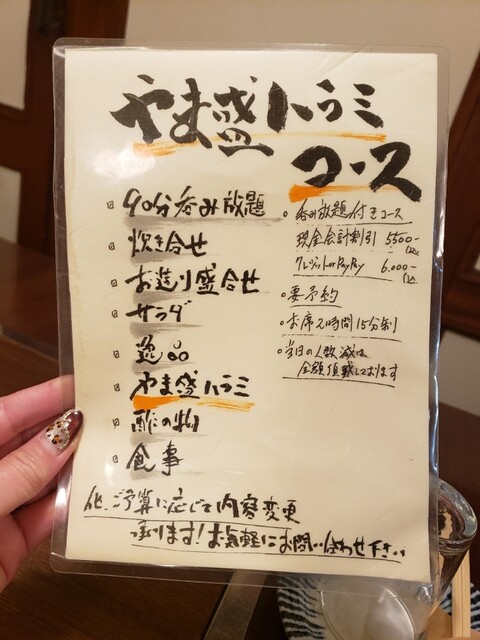 やま盛ハラミ
コース
90分呑み放題
炊き合せ
お造り盛合せ
サラダ
逸品
やま盛ハラミ
酢の物
食事
。呑み放題付きコース
現金会計割引 5500-
クレジットorPayPay 6.000-
。要予約
。お席2時間15分制
。当日の人数減は
全額頂戴しております
他、ご予算に応じて内容変更
承ります!お気軽にお問い合わせ下さい